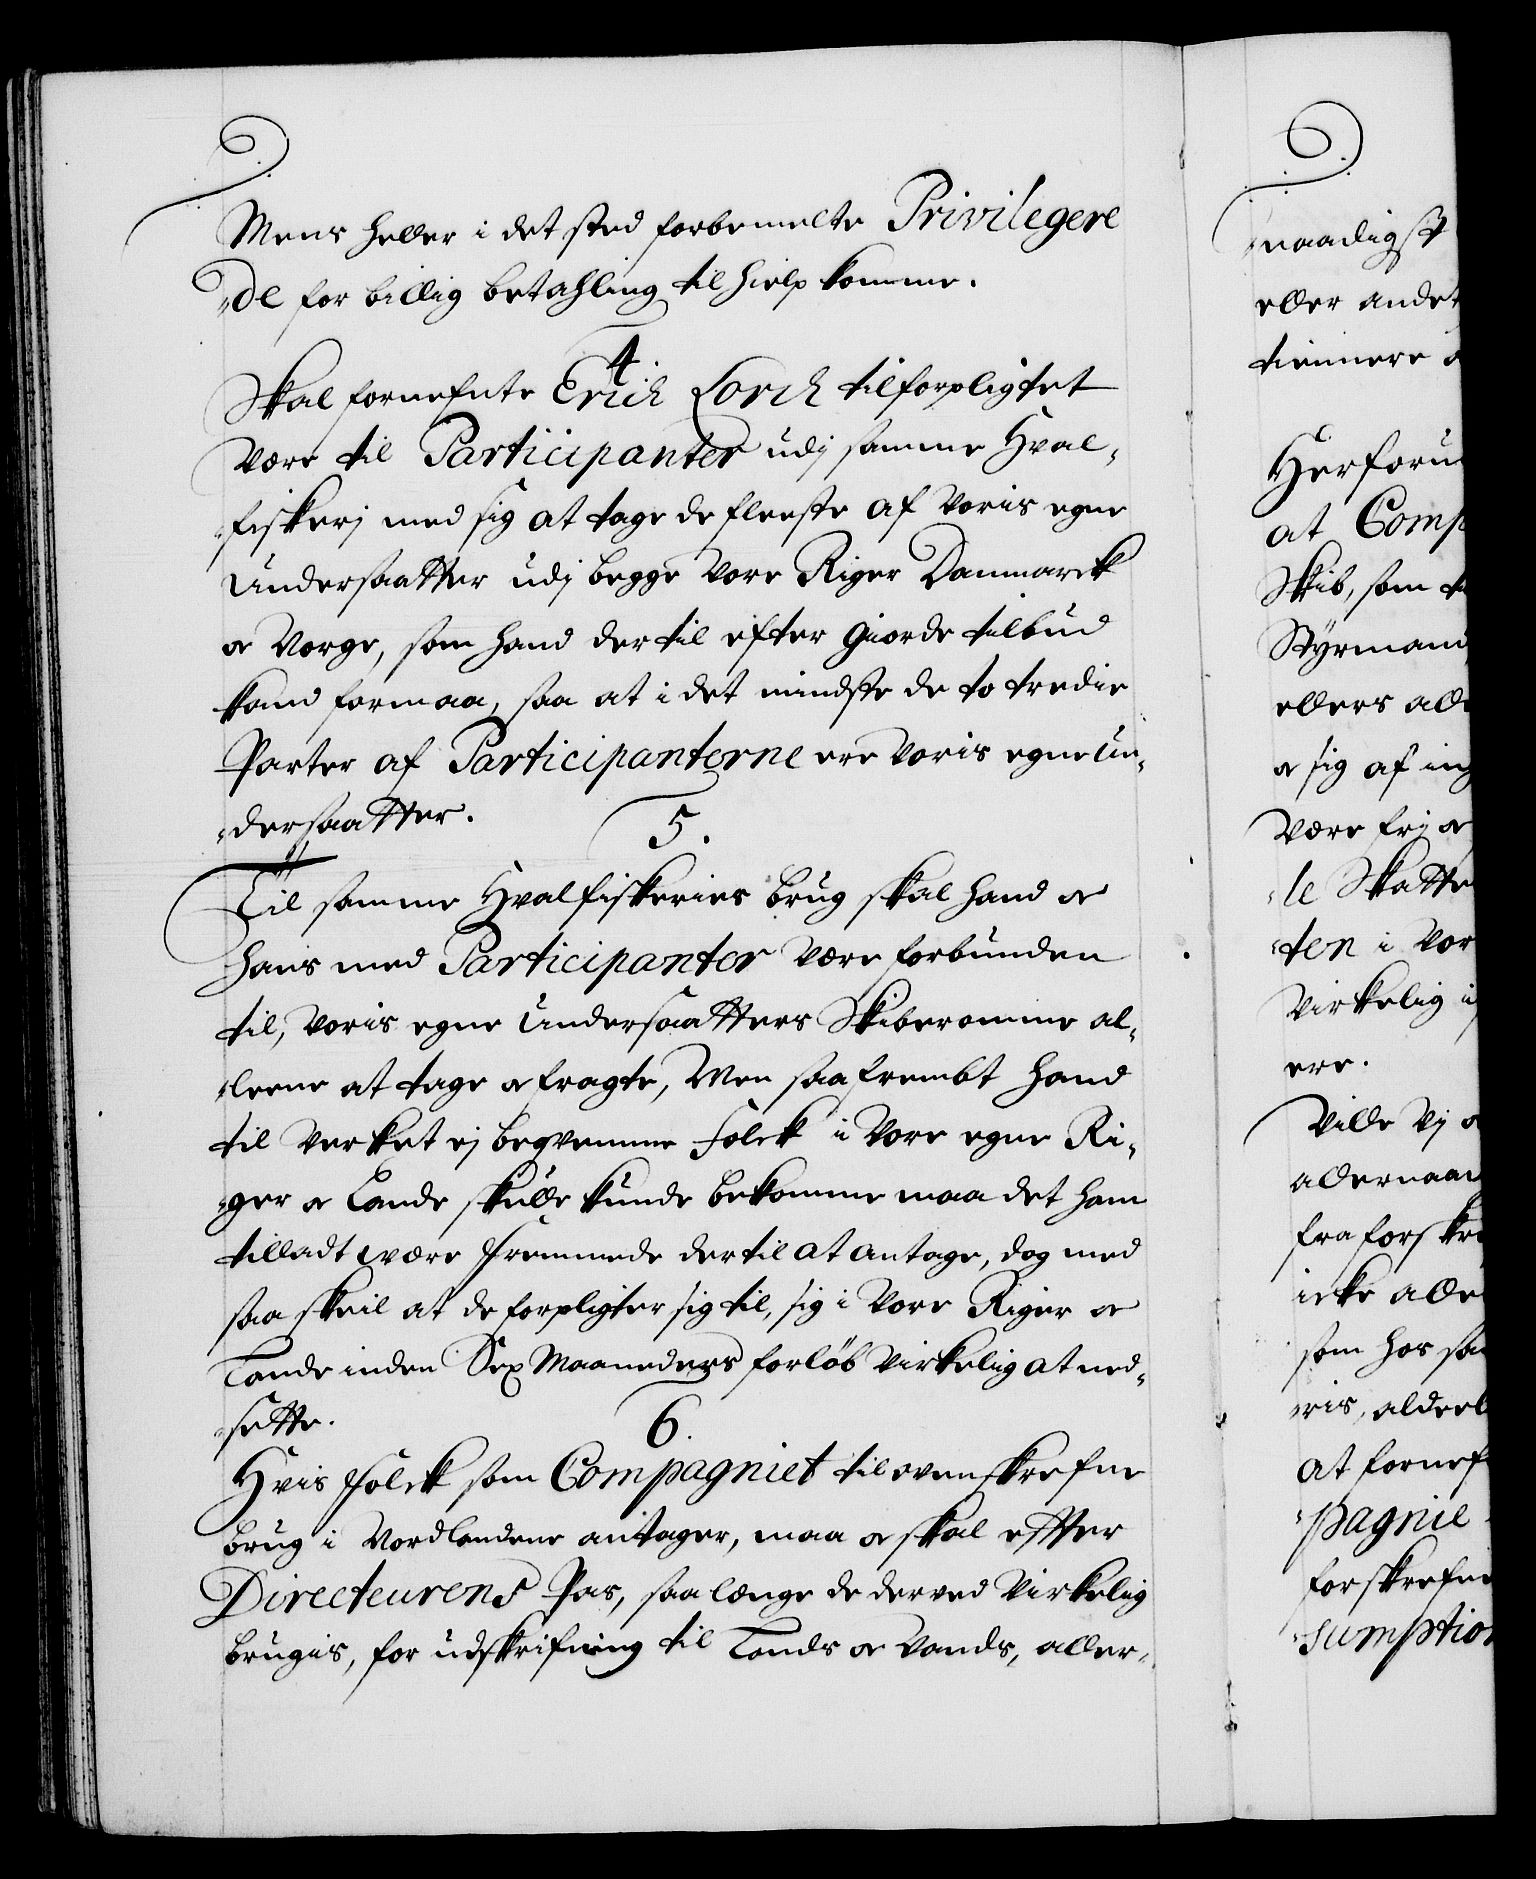 Mens heller i det sted forbemelte Privilegere
de for billig betahling til hielp komme.
4.
Skal fornefnte Erich Lorch tilforpligtet
være til Participanter udj samme Hval-
fiskerj med sig at tage de fleeste af Voris egne
Undersaatter udj begge Vore Riger Danmarck
og Norge, som hand dertil efter giorde tilbud
kand formaa, saa at i det mindste de to tredie
Parter af Participanterne ere Voris egne Un-
dersaatter.
5.
Til samme Hvalfiskeries brug skal hand og
hans med Participanter være forbunden
til, Voris egne Undersaatters Skiberomme al-
leene at tage og fragte, Men saafrembt hand
til Verket ej beqvemme Folck i Vore egne Ri-
ger og Lande skulle kunde bekomme maa det ham
tilladt være Fremmede dertil at antage, dog med
saa skeil at de forpligter sig til, sig i Vore Riger og
Lande inden Sex Maaneders forløb virkelig at ned-
sette.
6.
Hvis Folck som Compagniet til ovenskrefne
brug i Nordlandene antager, maa og skal efter
Directeurens Pas, saa længe de derved virkelig
brugis, for udskrifning til Lands og Vands, aller-
naadigst
eller andet
tiennere
Herforu
at Comp
Skib, som
Styrmand
ellers all
og sig af ing
være frj og
le Skatte
ten i Vor
virkelig i
ere.
Ville Vj
allernaa
fra forskre
icke alle
som hos sa
ris, aldeel
at fornef
pagnie
forskrefne
sumption